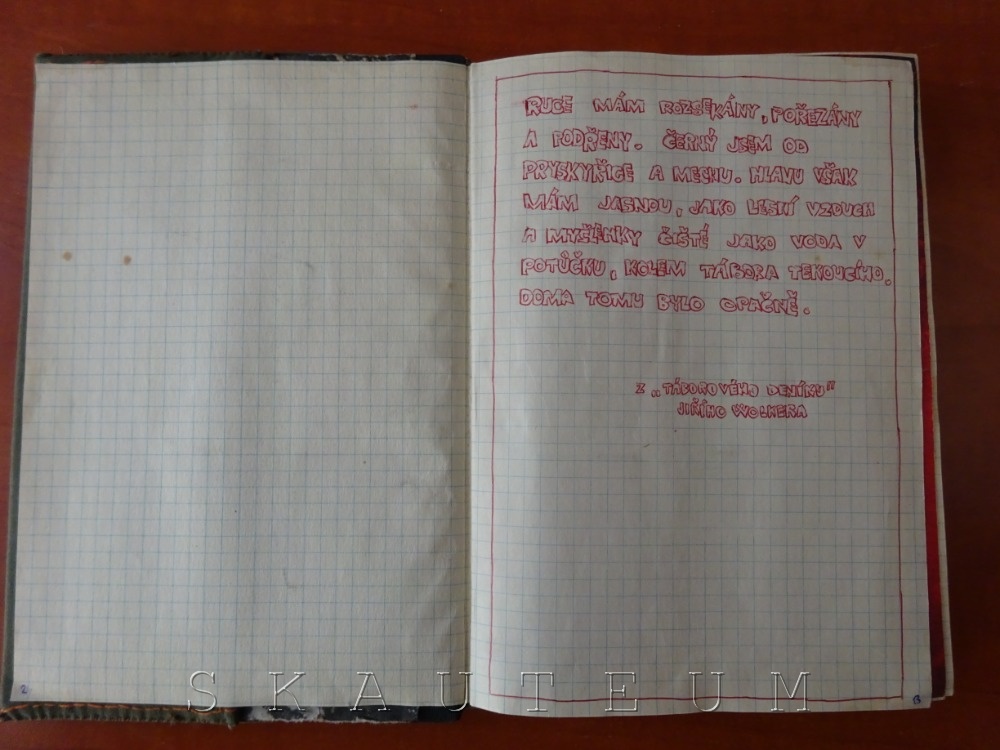 RUCE MÁM ROZSEKÁNY, POŘEZÁNY
A PODŘENY. ČERNÝ JSEM OD
PRYSKYŘICE A MECHU. HLAVU VŠAK
MÁM JASNOU, JAKO LESNÍ VZDUCH
A MYŠLENKY ČISTÉ JAKO VODA V
POTŮČKU, KOLEM TÁBORA TEKOUCÍHO.
DOMA TOMU BYLO OPAČNĚ.
Z „TÁBOROVÉHO DENÍKU"
JIŘÍHO WOLKERA
2
3
SKAUTEUM